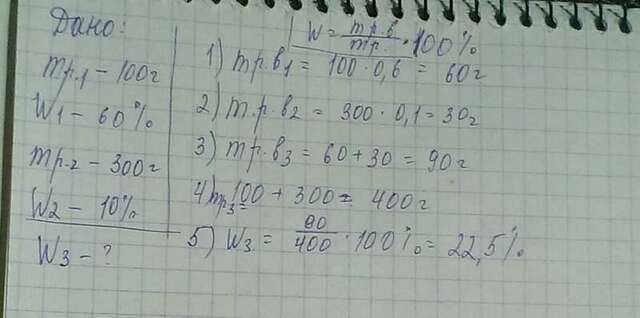 Дано:
mр.1 - 100г
W1 - 60%
mр.2 - 300г
W2 - 10%
W3 - ?
W = mр.в / mр. · 100%
1) mр.в1 = 100 · 0,6 = 60г
2) mр.в2 = 300 · 0,1 = 30г
3) mр.в3 = 60 + 30 = 90г
4) mр3 = 100 + 300 = 400г
5) W3 = 90/400 · 100% = 22,5%